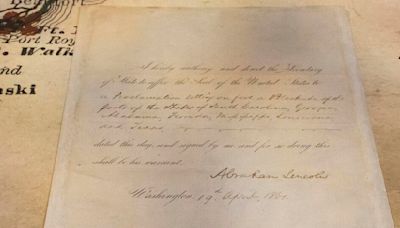 Ft.
Port Roy
. Walk
nd
aski
I hereby authorize and direct the Secretary
of State to affix the Seal of the United States to
a Proclamation setting on foot a Blockade of the
ports of the States of South Carolina, Georgia
Alabama, Florida, Mississippi, Louisiana
and Texas,
dated this day, and signed by me and for so doing this
shall be his warrant.
Abraham Lincoln
Washington, 19th April, 1861